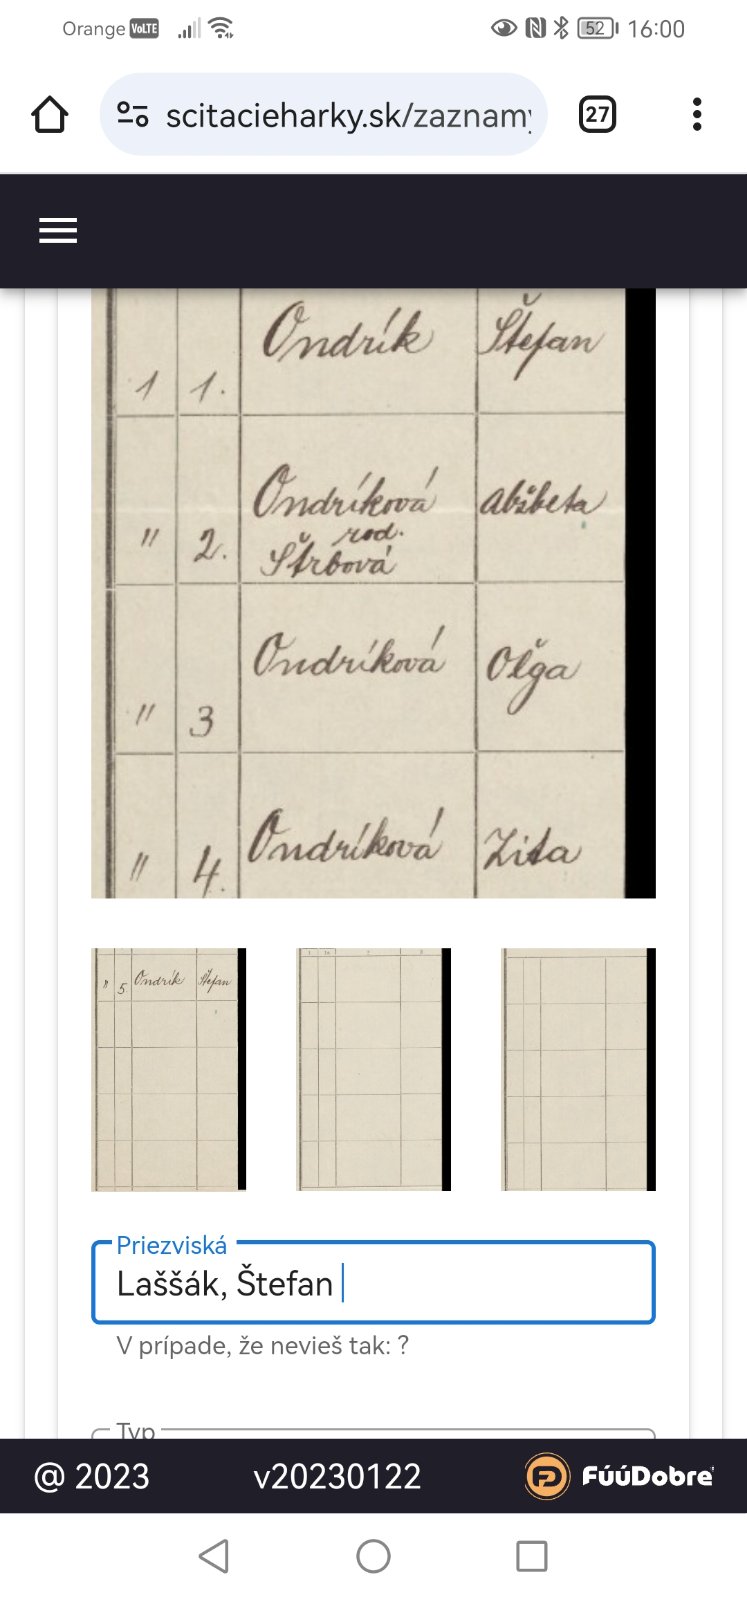 Orange VoLTE 52 16:00
scitacieharky.sk/zaznamy 27
Ondrík Štefan
1 1.
Ondríková Alžbeta
rod.
" 2. Štrbová
Ondríková Oľga
" 3
Ondríková Zita
" 4.
" 5 Ondrík Štefan
Priezviská
Laššák, Štefan
V prípade, že nevieš tak: ?
Typ
@ 2023 v20230122 FúúDobre